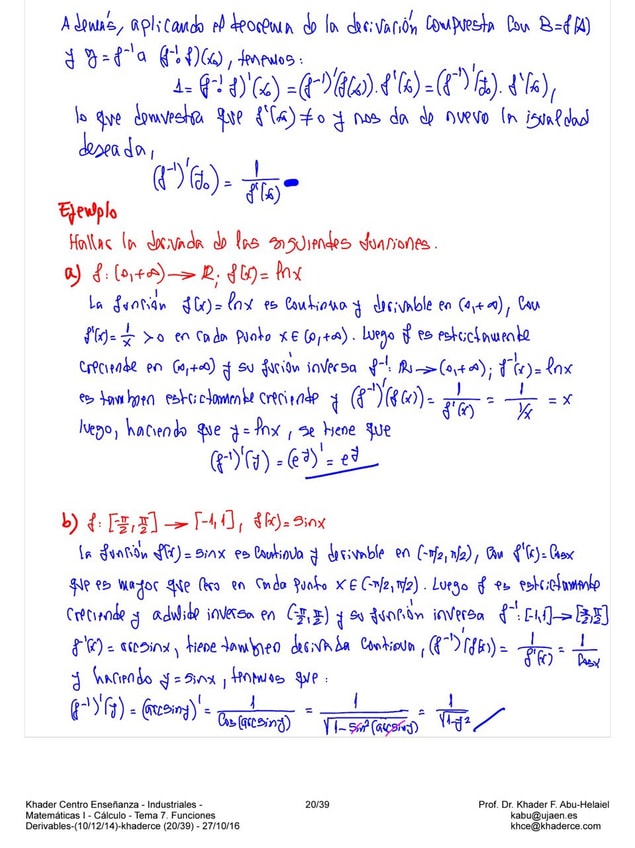 Además, aplicando el teorema de la derivación compuesta con B=f(A)
y g=f⁻¹ a (f⁻¹∘f)(x₀), tenemos:
1=(f⁻¹∘f)'(x₀)=(f⁻¹)'(f(x₀)).f'(x₀)=(f⁻¹)'(y₀).f'(x₀),
lo que demuestra que f'(x₀)≠0 y nos da de nuevo la igualdad
deseada,
(f⁻¹)'(y₀)= 1/f'(x₀)
Ejemplo
Hallar la derivada de las siguientes funciones.
a) f:(0,+∞)→ℝ; f(x)=lnx
La función f(x)=lnx es continua y derivable en (0,+∞), con
f'(x)=1/x >0 en cada punto x∈(0,+∞). Luego f es estrictamente
creciende en (0,+∞) y su fución inversa f⁻¹: ℝ→(0,+∞); f⁻¹(x)=lnx
es tambien estrictamente creciende y (f⁻¹)'(f(x))= 1/f'(x) = 1/(1/x) = x
luego, haciendo que y=lnx, se tiene que
(f⁻¹)'(y)=(e^y)'=e^y
b) f:[-π/2,π/2]→[-1,1], f(x)=sinx
La función f(x)=sinx es continua y derivable en (-π/2,π/2), con f'(x)=cosx
que es mayor que cero en cada punto x∈(-π/2,π/2). Luego f es estrictamente
creciende y admite inversa en (-π/2,π/2) y su función inversa f⁻¹:[-1,1]→[-π/2,π/2]
f⁻¹(x)=arcsinx, tiene tambien derivada continua, (f⁻¹)'(f(x))= 1/f'(x) = 1/cosx
y haciendo y=sinx, tenemos que:
(f⁻¹)'(y)=(arcsiny)'= 1/cos(arcsiny) = 1/√(1-sin²(arcsiny)) = 1/√(1-y²)
Khader Centro Enseñanza - Industriales - 20/39 Prof. Dr. Khader F. Abu-Helaiel
Matemáticas I - Cálculo - Tema 7. Funciones kabu@ujaen.es
Derivables-(10/12/14)-khaderce (20/39) - 27/10/16 khce@khaderce.com